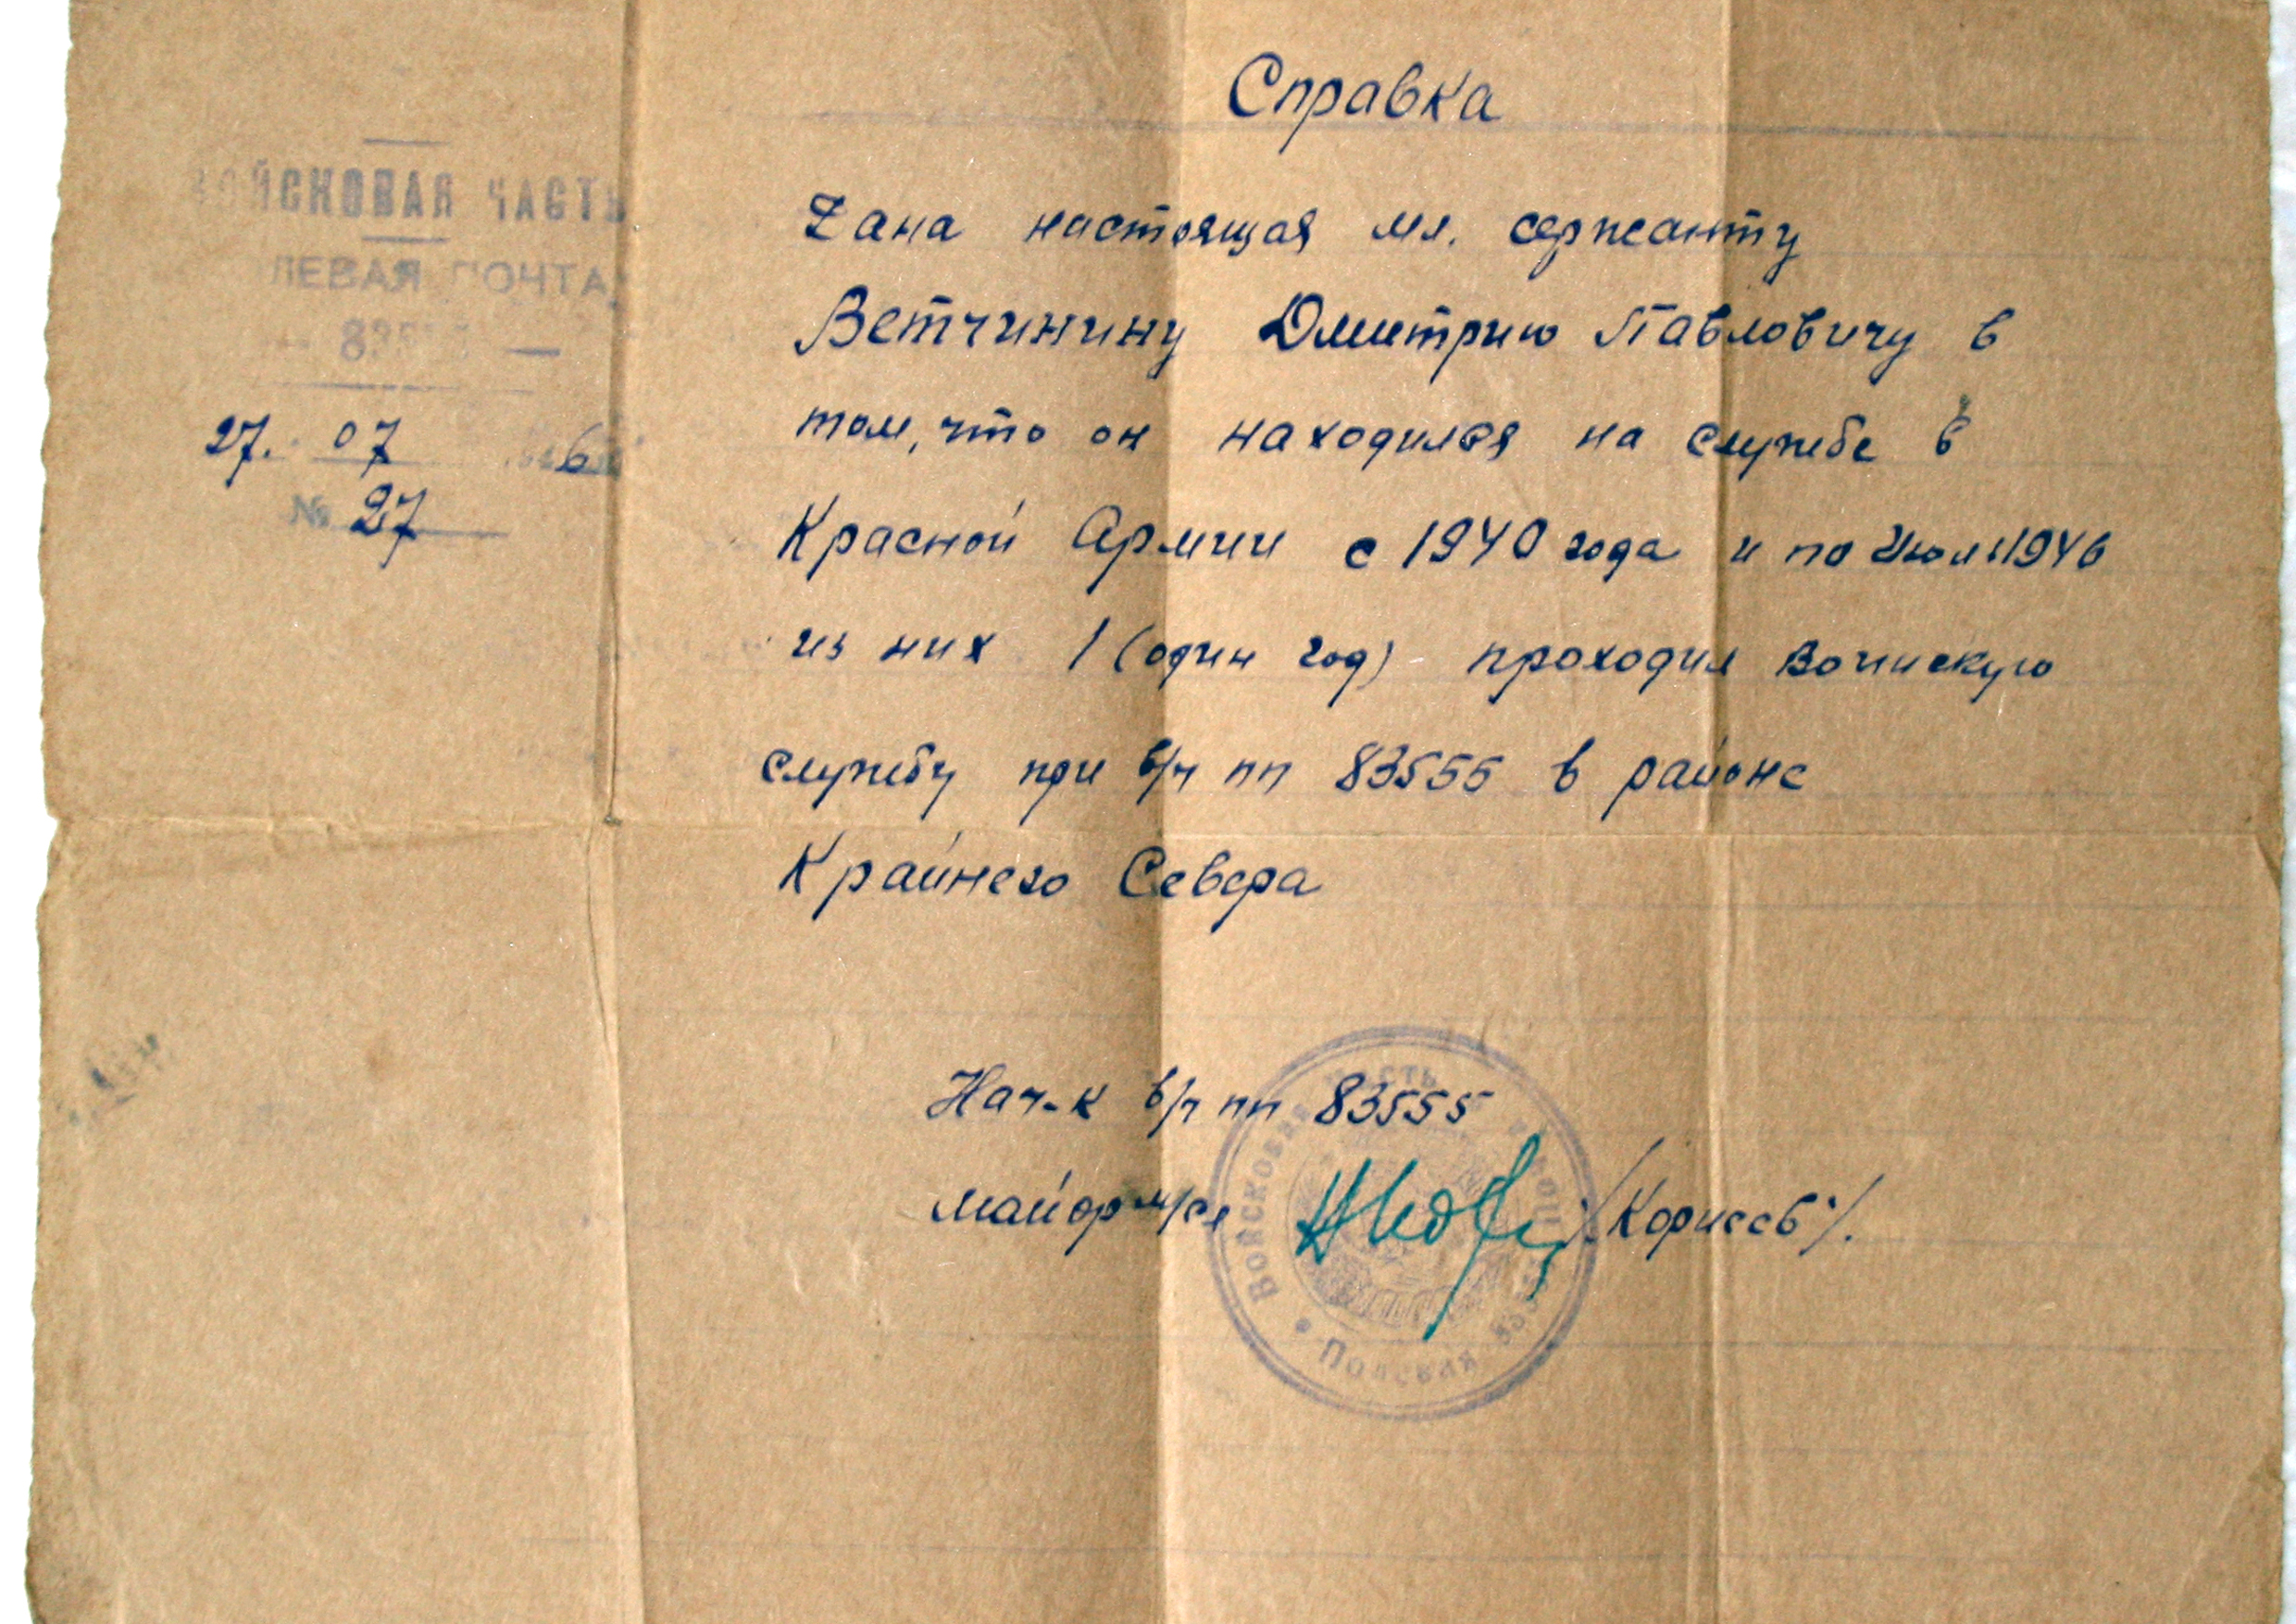 Справка
ВОЙСКОВАЯ ЧАСТЬ
ЛЕВАЯ ПОЧТА
27. 07 6
№ 27
Дана настоящая мл. сержанту
Ветчинину Дмитрию Павловичу в
том, что он находился на службе в
Красной Армии с 1940 года и по Июль 1946
из них 1 (один год) проходил воинскую
службу при в/ч пп 83555 в районе
Крайнего Севера
Нач-к в/ч пп 83555
майор м/сл /Кориеев/.
Войсковая часть
Полевая почта